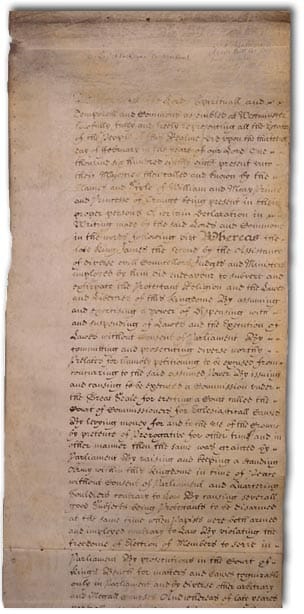 the Lords Spirituall and
Temporall and Comons assembled at Westminster
lawfully fully and freely representing all the Estates
of the People of this Realme did upon the thirteenth
day of February in the yeare of our Lord One
thousand six hundred eighty eight present unto
their Majesties then called and known by the
Names and Stile of William and Mary Prince
and Princesse of Orange being present in their
proper persons a certain Declaration in
Writing made by the said Lords and Comons
in the words following viz Whereas the
late King James the Second by the Assistance
of diverse evill Councellors Judges and Ministers
imployed by him did endeavour to subvert and
extirpate the Protestant Religion and the Lawes
and Liberties of this Kingdome By assuming
and exercising a power of Dispensing with
and suspending of Lawes and the Execution of
Lawes without Consent of Parliament By
committing and prosecuting diverse worthy
Prelates for humbly petitioning to be excused from
concurring to the said assumed Power By issuing
and causing to be executed a Commission under
the Great Seale for erecting a Court called the
Court of Commissioners for Ecclesiasticall Causes
By levying money for and to the use of the Crowne
by pretence of Prerogative for other time and in
other manner then the same was granted by
Parliament By raising and keeping a standing
Army within this Kingdome in time of Peace
without Consent of Parliament and Quartering
Souldiers contrary to Law By causing severall
good Subjects being Protestants to be disarmed
at the same time when Papists were both armed
and imployed contrary to Law By violating the
freedome of Election of Members to serve in
Parliament By prosecutions in the Court of
Kings Bench for matters and causes cognizable
only in Parliament and by diverse other arbitrary
and illegall courses And whereas of late yeares